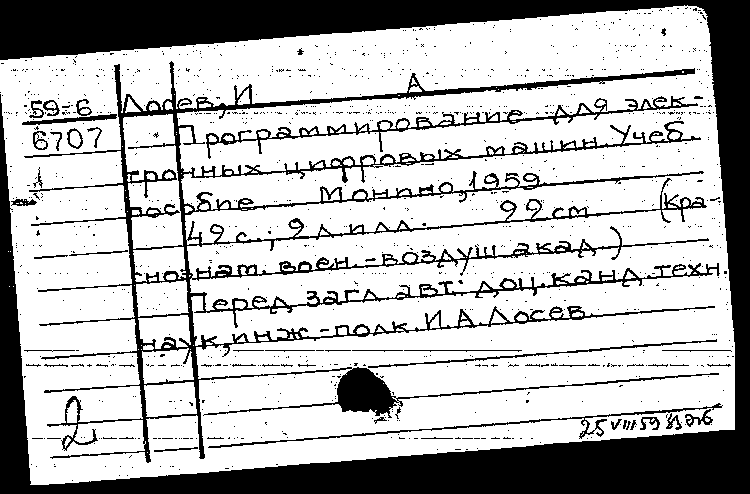 59-6 Лосев, И А
6707 Программирование для элек-
тронных цифровых машин. Учеб.
пособие. Монино, 1959.
49 с.; 2 л. илл. 22 cm (Кра-
снознам. воен.-воздуш. акад.)
Перед загл. авт.: доц. канд. техн.
наук, инж.-полк. И.А. Лосев.
2
25 VIII 59